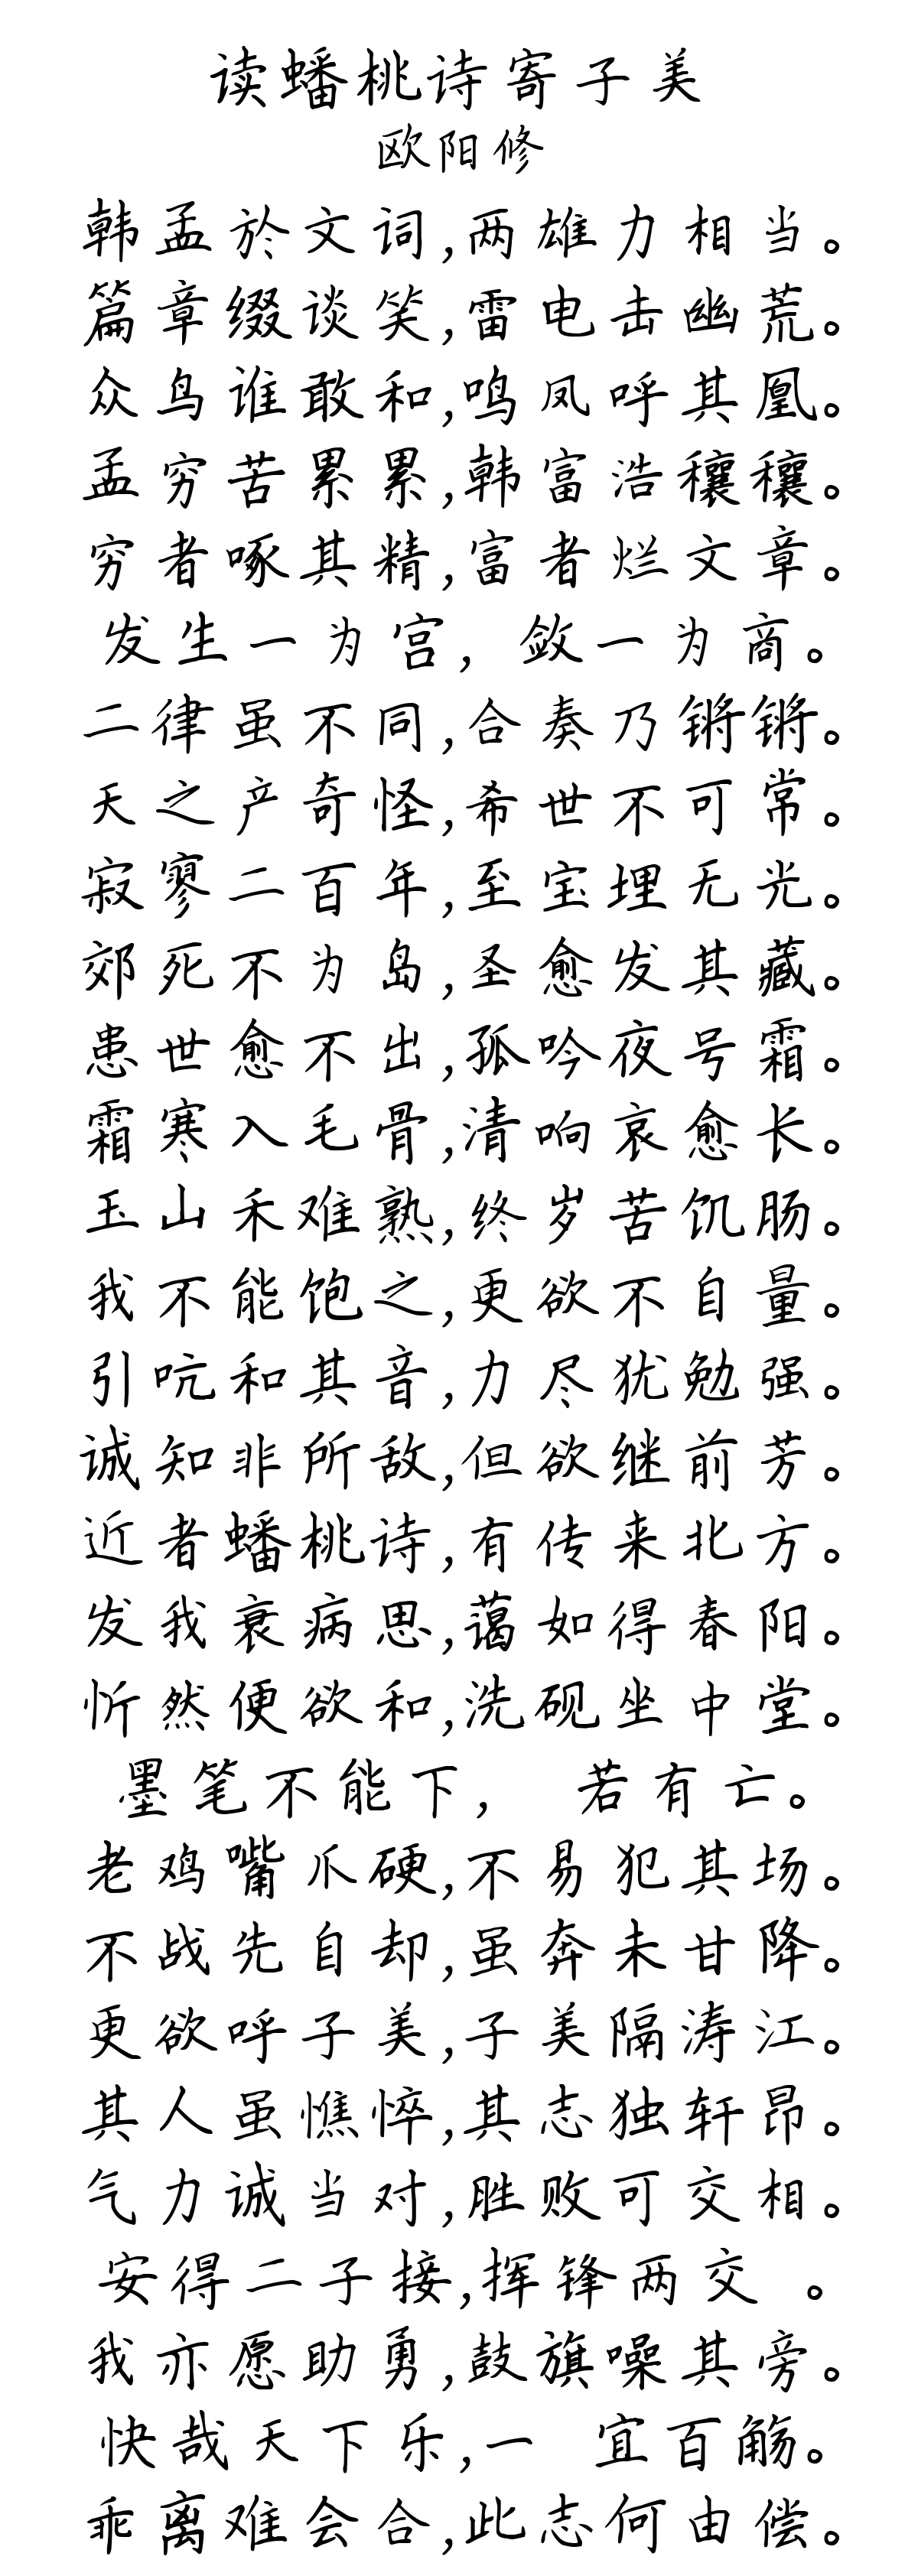 读蟠桃诗寄子美
欧阳修
韩孟於文词,两雄力相当。
篇章缀谈笑,雷电击幽荒。
众鸟谁敢和,鸣凤呼其凰。
孟穷苦累累,韩富浩穰穰。
穷者啄其精,富者烂文章。
发生一为宫,敛一为商。
二律虽不同,合奏乃锵锵。
天之产奇怪,希世不可常。
寂寥二百年,至宝埋无光。
郊死不为岛,圣愈发其藏。
患世愈不出,孤吟夜号霜。
霜寒入毛骨,清响哀愈长。
玉山禾难熟,终岁苦饥肠。
我不能饱之,更欲不自量。
引吭和其音,力尽犹勉强。
诚知非所敌,但欲继前芳。
近者蟠桃诗,有传来北方。
发我衰病思,蔼如得春阳。
忻然便欲和,洗砚坐中堂。
墨笔不能下, 若有亡。
老鸡嘴爪硬,不易犯其场。
不战先自却,虽奔未甘降。
更欲呼子美,子美隔涛江。
其人虽憔悴,其志独轩昂。
气力诚当对,胜败可交相。
安得二子接,挥锋两交 。
我亦愿助勇,鼓旗噪其旁。
快哉天下乐,一 宜百觞。
乖离难会合,此志何由偿。